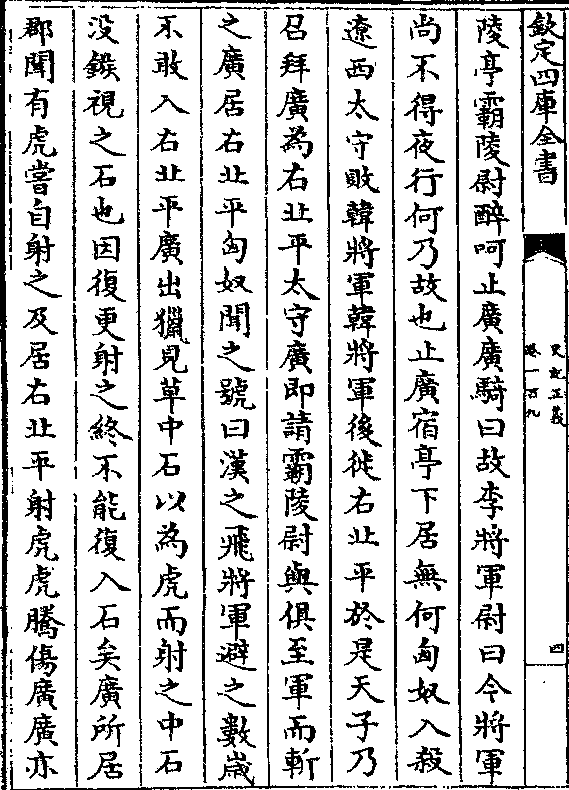 欽定四庫全書
史記正義
卷一百九
四
陵亭霸陵尉醉呵止廣廣騎曰故李將軍尉曰今將軍
尚不得夜行何乃故也止廣宿亭下居無何匈奴入殺
遼西太守敗韓將軍韓將軍後徙右北平於是天子乃
召拜廣為右北平太守廣即請霸陵尉與俱至軍而斬
之廣居右北平匈奴聞之號曰漢之飛將軍避之數歲
不敢入右北平廣出獵見草中石以為虎而射之中石
没鏃視之石也因復更射之終不能復入石矣廣所居
郡聞有虎嘗自射之及居右北平射虎虎騰傷廣廣亦